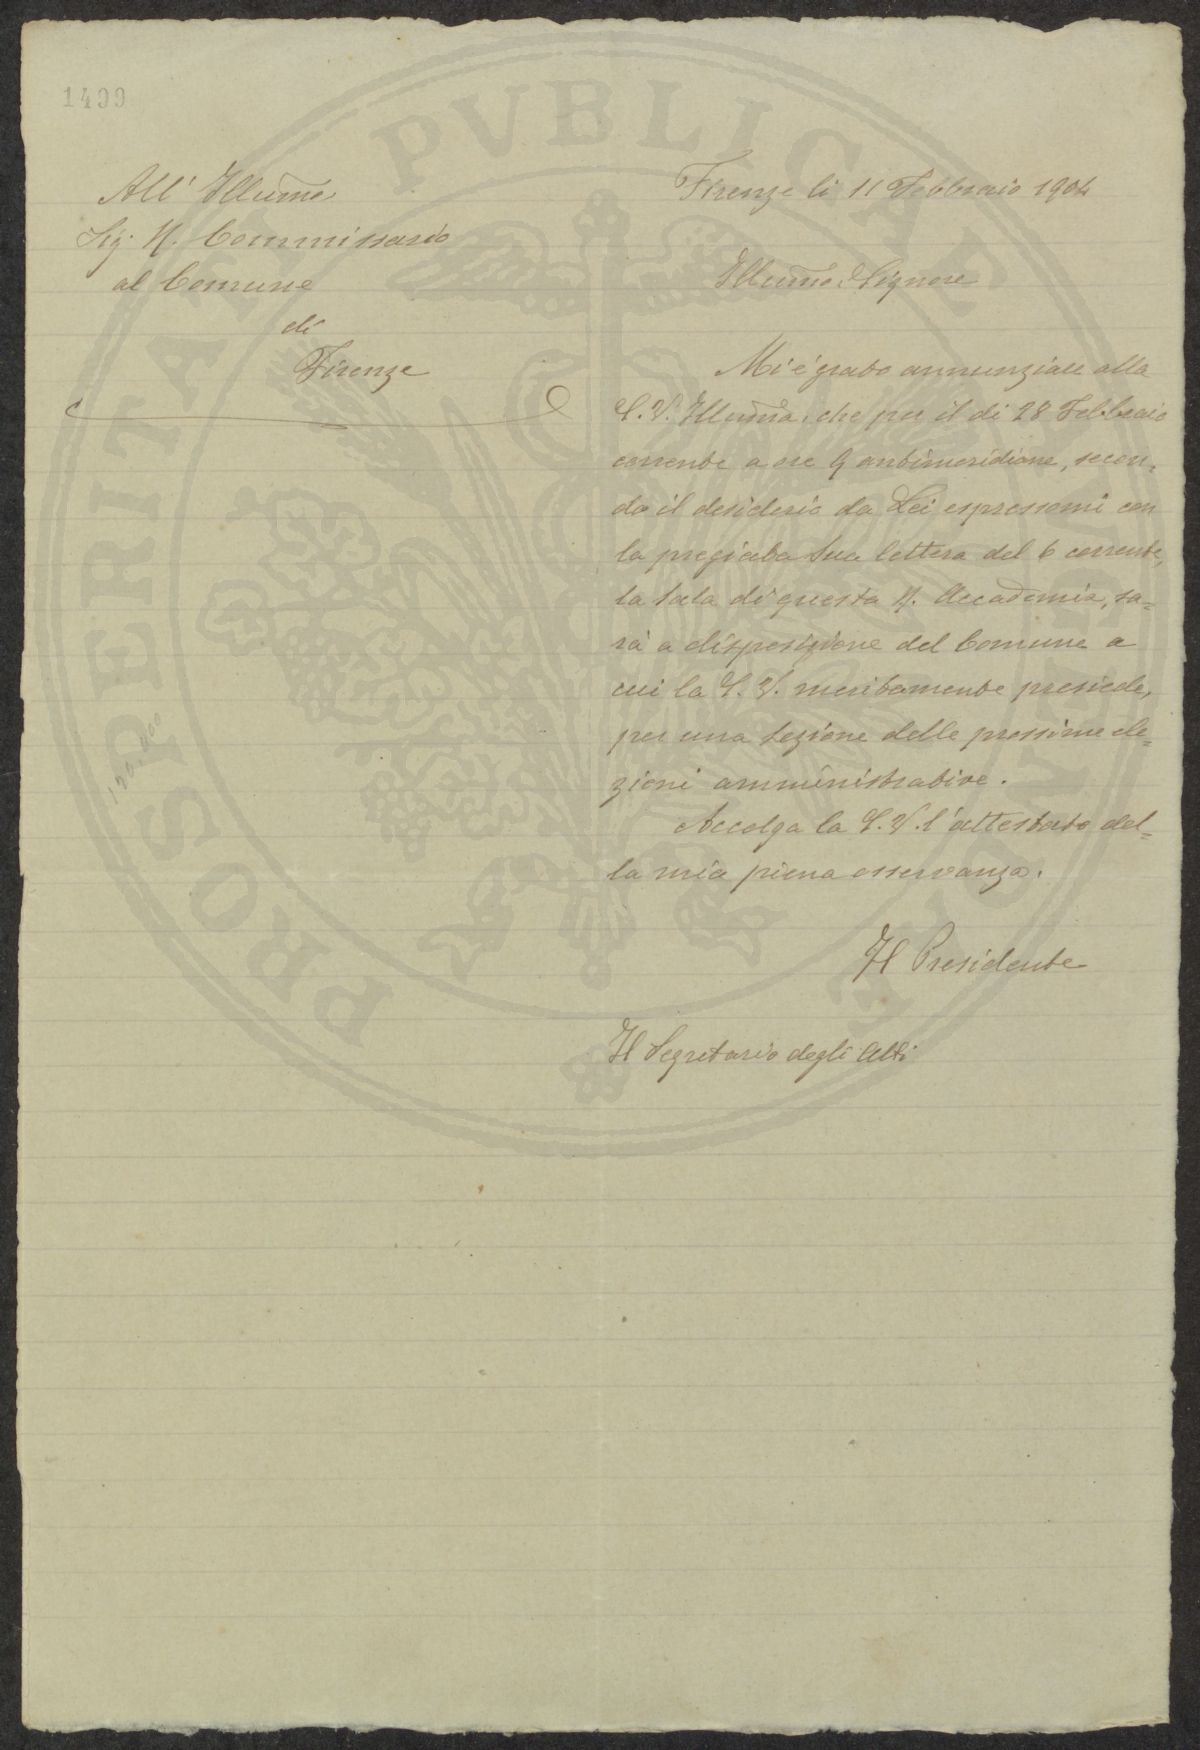 1499
All' Illumo
Sig. R. Commissario
al Comune
di
Firenze
Firenze li 11 Febbraio 1904
Illumo Signore
Mi è grato annunziale alla
S. V. Illuma, che per il dì 28 Febbraio
corrente a ore 9 antimeridiane, secon-
do il desiderio da Lei espressomi con
la pregiata Sua lettera del 6 corrente,
la Sala di questa R. Accademia, sa=
rà a disposizione del Comune a
cui la S. V. meritamente presiede,
per una Sezione delle prossime ele=
zioni amministrative.
Accolga la S. V. l'attestato del=
la mia piena osservanza.
Il Presidente
Il Segretario degli Atti
PROSPERITATI PVBLICAE
120.200